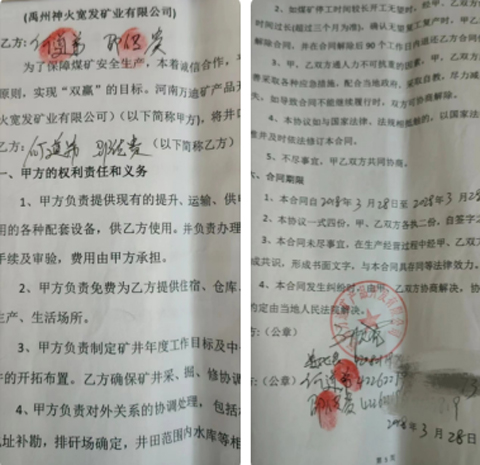 (禹州神火宽发矿业有限公司)
乙方:
为了保障煤矿安全生产，本着诚信合作，
原则，实现“双赢”的目标。河南万迪矿产品开
火宽发矿业有限公司）(以下简称甲方)，将井
乙方: (以下简称乙方)
一、甲方的权利责任和义务
1、甲方负责提供现有的提升、运输、供
用的各种配套设备，供乙方使用。并负责办理
手续及审验，费用由甲方承担。
2、甲方负责免费为乙方提供住宿、仓库、
生产、生活场所。
3、甲方负责制定矿井年度工作目标及中
的开拓布置。乙方确保矿井采、掘、修协调
4、甲方负责对外关系的协调处理，包括
址补勘，排矸场确定，井田范围内水库等相
2、如煤矿停工时间较长开工无望时，经甲、乙双方
时间过长(超过三个月为准)，确认无望复工复产时，甲
解除合同，并在合同解除后90个工作日内退还乙方合同
3、甲、乙双方遇人力不可抗拒的因素，甲、乙双方
善采取各种应急措施、配合当地政府，采取自救，尽力减
失，如导致合同不能继续履行时，双方可协商解除。
4、本协议如与国家法律、法规相抵触的，以国家法
准并及时依法修订本合同。
5、不尽事宜，甲乙双方共同协商。
六、合同期限
1、本合同自 年3月28日至 年3月28
2、本协议一式四份，甲、乙双方各执二份，自签字之
3、本合同未尽事宜，在生产经营过程中经甲、乙双方
成共识，形成书面文字，与本合同具有同等法律效力。
4、本合同发生纠纷时，由甲、乙双方协商解决，协
约定由当地人民法院解决。
方:(公章)
方:(公章)
年3月28日
第3页